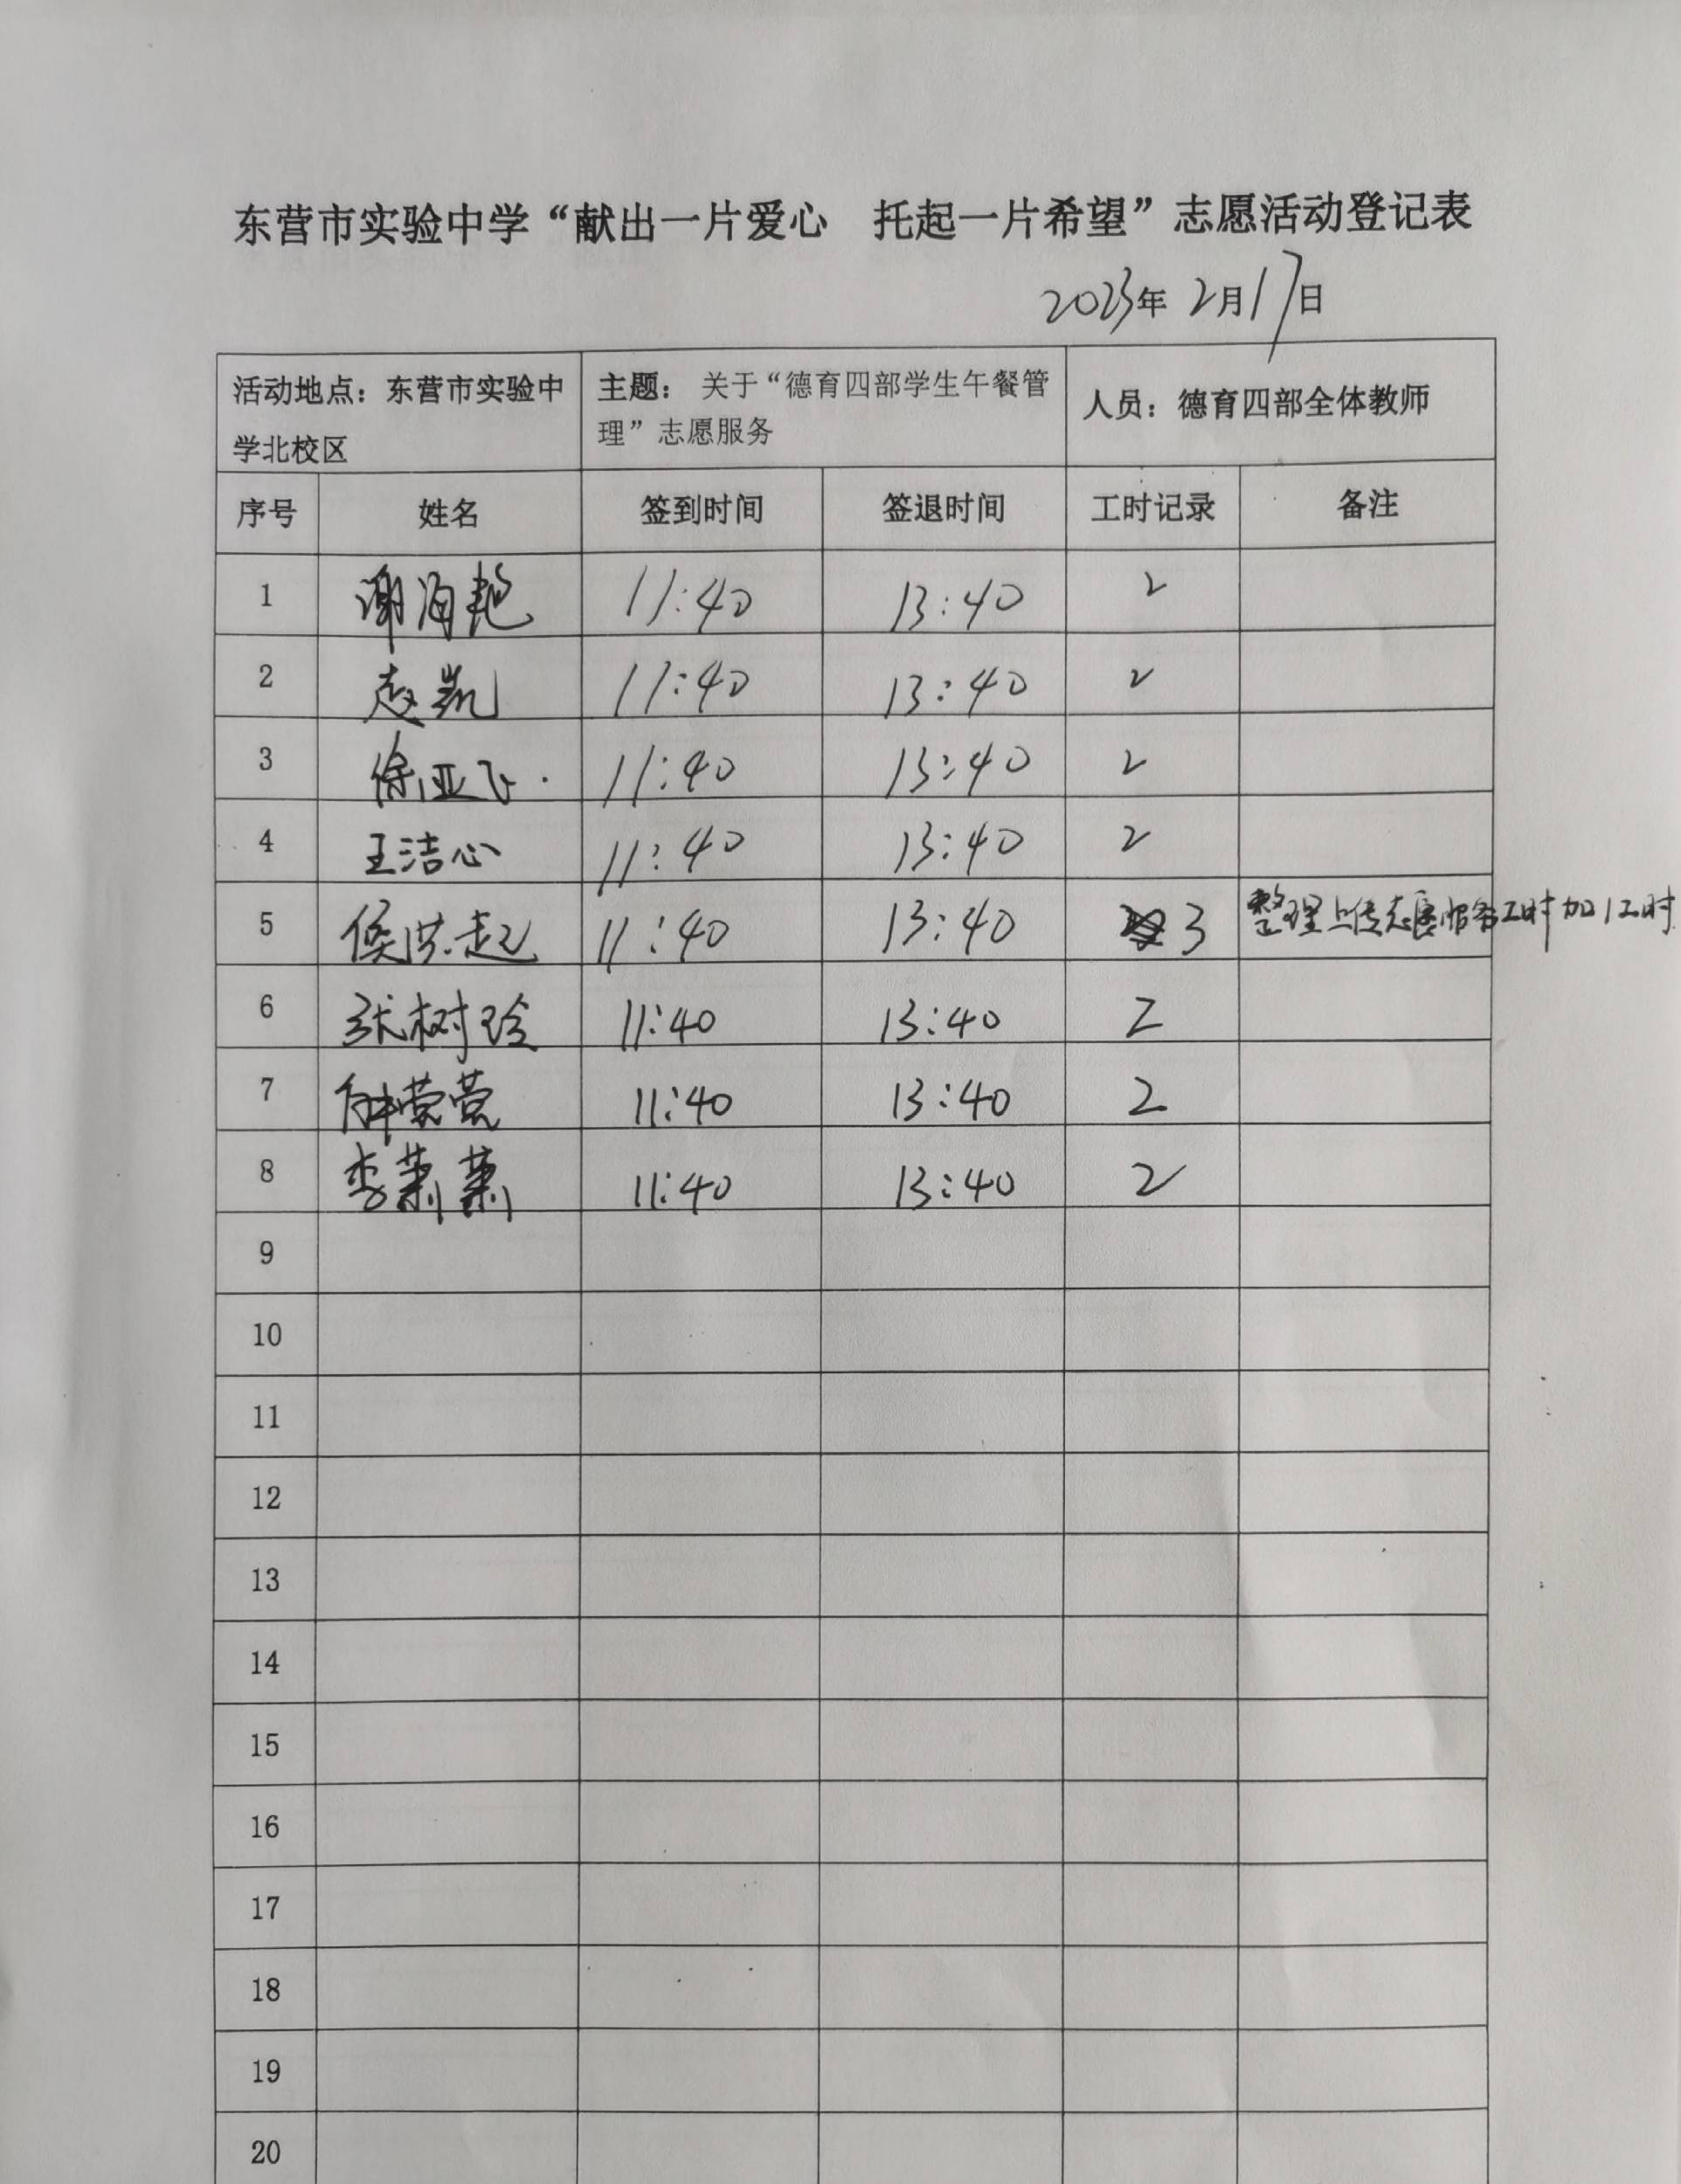 东营市实验中学“献出一片爱心　托起一片希望”志愿活动登记表
2023年 2月17日
活动地点：东营市实验中
学北校区
主题： 关于“德育四部学生午餐管
理”志愿服务
人员：德育四部全体教师
序号 姓名 签到时间 签退时间 工时记录 备注
1 谢海艳 11:40 13:40 2
2 赵凯 11:40 13:40 2
3 徐亚飞 11:40 13:40 2
4 王洁心 11:40 13:40 2
5 侯洪起 11:40 13:40 3 整理上传志愿服务工时加1工时
6 张树玲 11:40 13:40 2
7 11:40 13:40 2
8 李萧萧 11:40 13:40 2
9
10
11
12
13
14
15
16
17
18
19
20